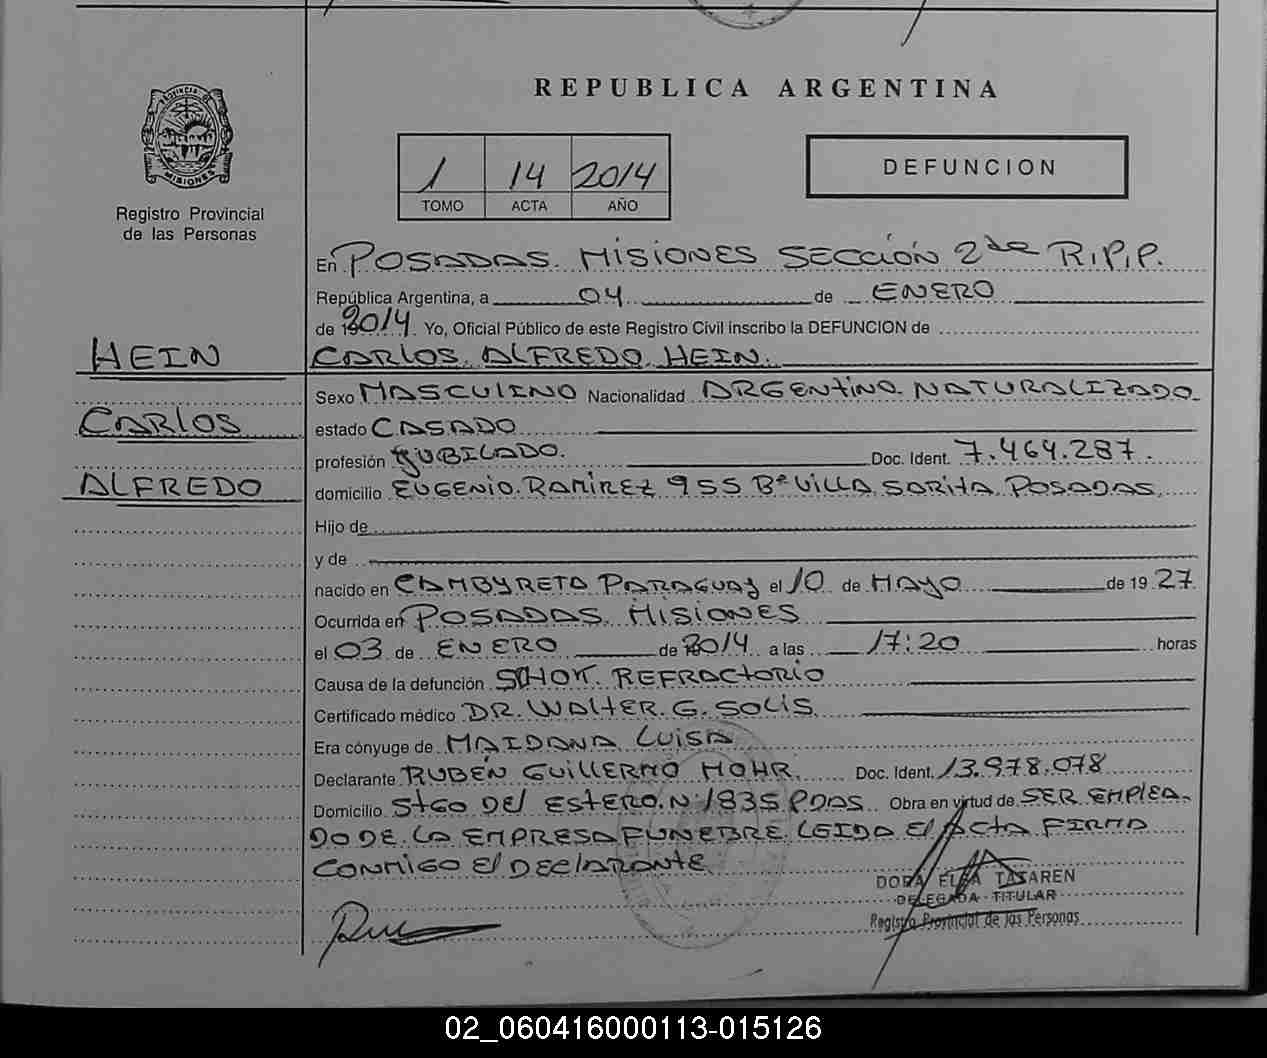 REPUBLICA ARGENTINA
PROVINCIA D
MISIONES
Registro Provincial
de las Personas
1 14 2014
TOMO ACTA AÑO
DEFUNCION
En POSADAS. MISIONES SECCIÓN 2da R.P.P.
República Argentina, a 04 de ENERO
de 2014. Yo, Oficial Público de este Registro Civil inscribo la DEFUNCION de
HEIN
CARLOS
ALFREDO
CARLOS. ALFREDO. HEIN.
Sexo MASCULINO Nacionalidad ARGENTINO. NATURALIZADO
estado CASADO
profesión JUBILADO. Doc. Ident. 7.464.287.
domicilio EUGENIO. RAMIREZ 955 Bº VILLA. SARITA. POSADAS.
Hijo de
y de
nacido en CAMBYRETA PARAGUAY el 10 de MAYO de 19 27
Ocurrida en POSADAS. MISIONES
el 03 de ENERO de 2014 a las 17:20 horas
Causa de la defunción SHOK. REFRACTORIO
Certificado médico DR. WALTER. G. SOLIS
Era cónyuge de MAIDANA LUISA
Declarante RUBÉN GUILLERMO MOHR. Doc. Ident. 13.978.078
Domicilio StGO DEl ESTERO. N 1835 PDAS Obra en virtud de SER EMPLEA-
DO DE LA EMPRESA FUNEBRE. LEIDA El ACTA FIRMA
CONMIGO El DEClARANTE
DORA ELSA TABAREN
DELEGADA TITULAR
Registro Provincial de las Personas
02_060416000113-015126